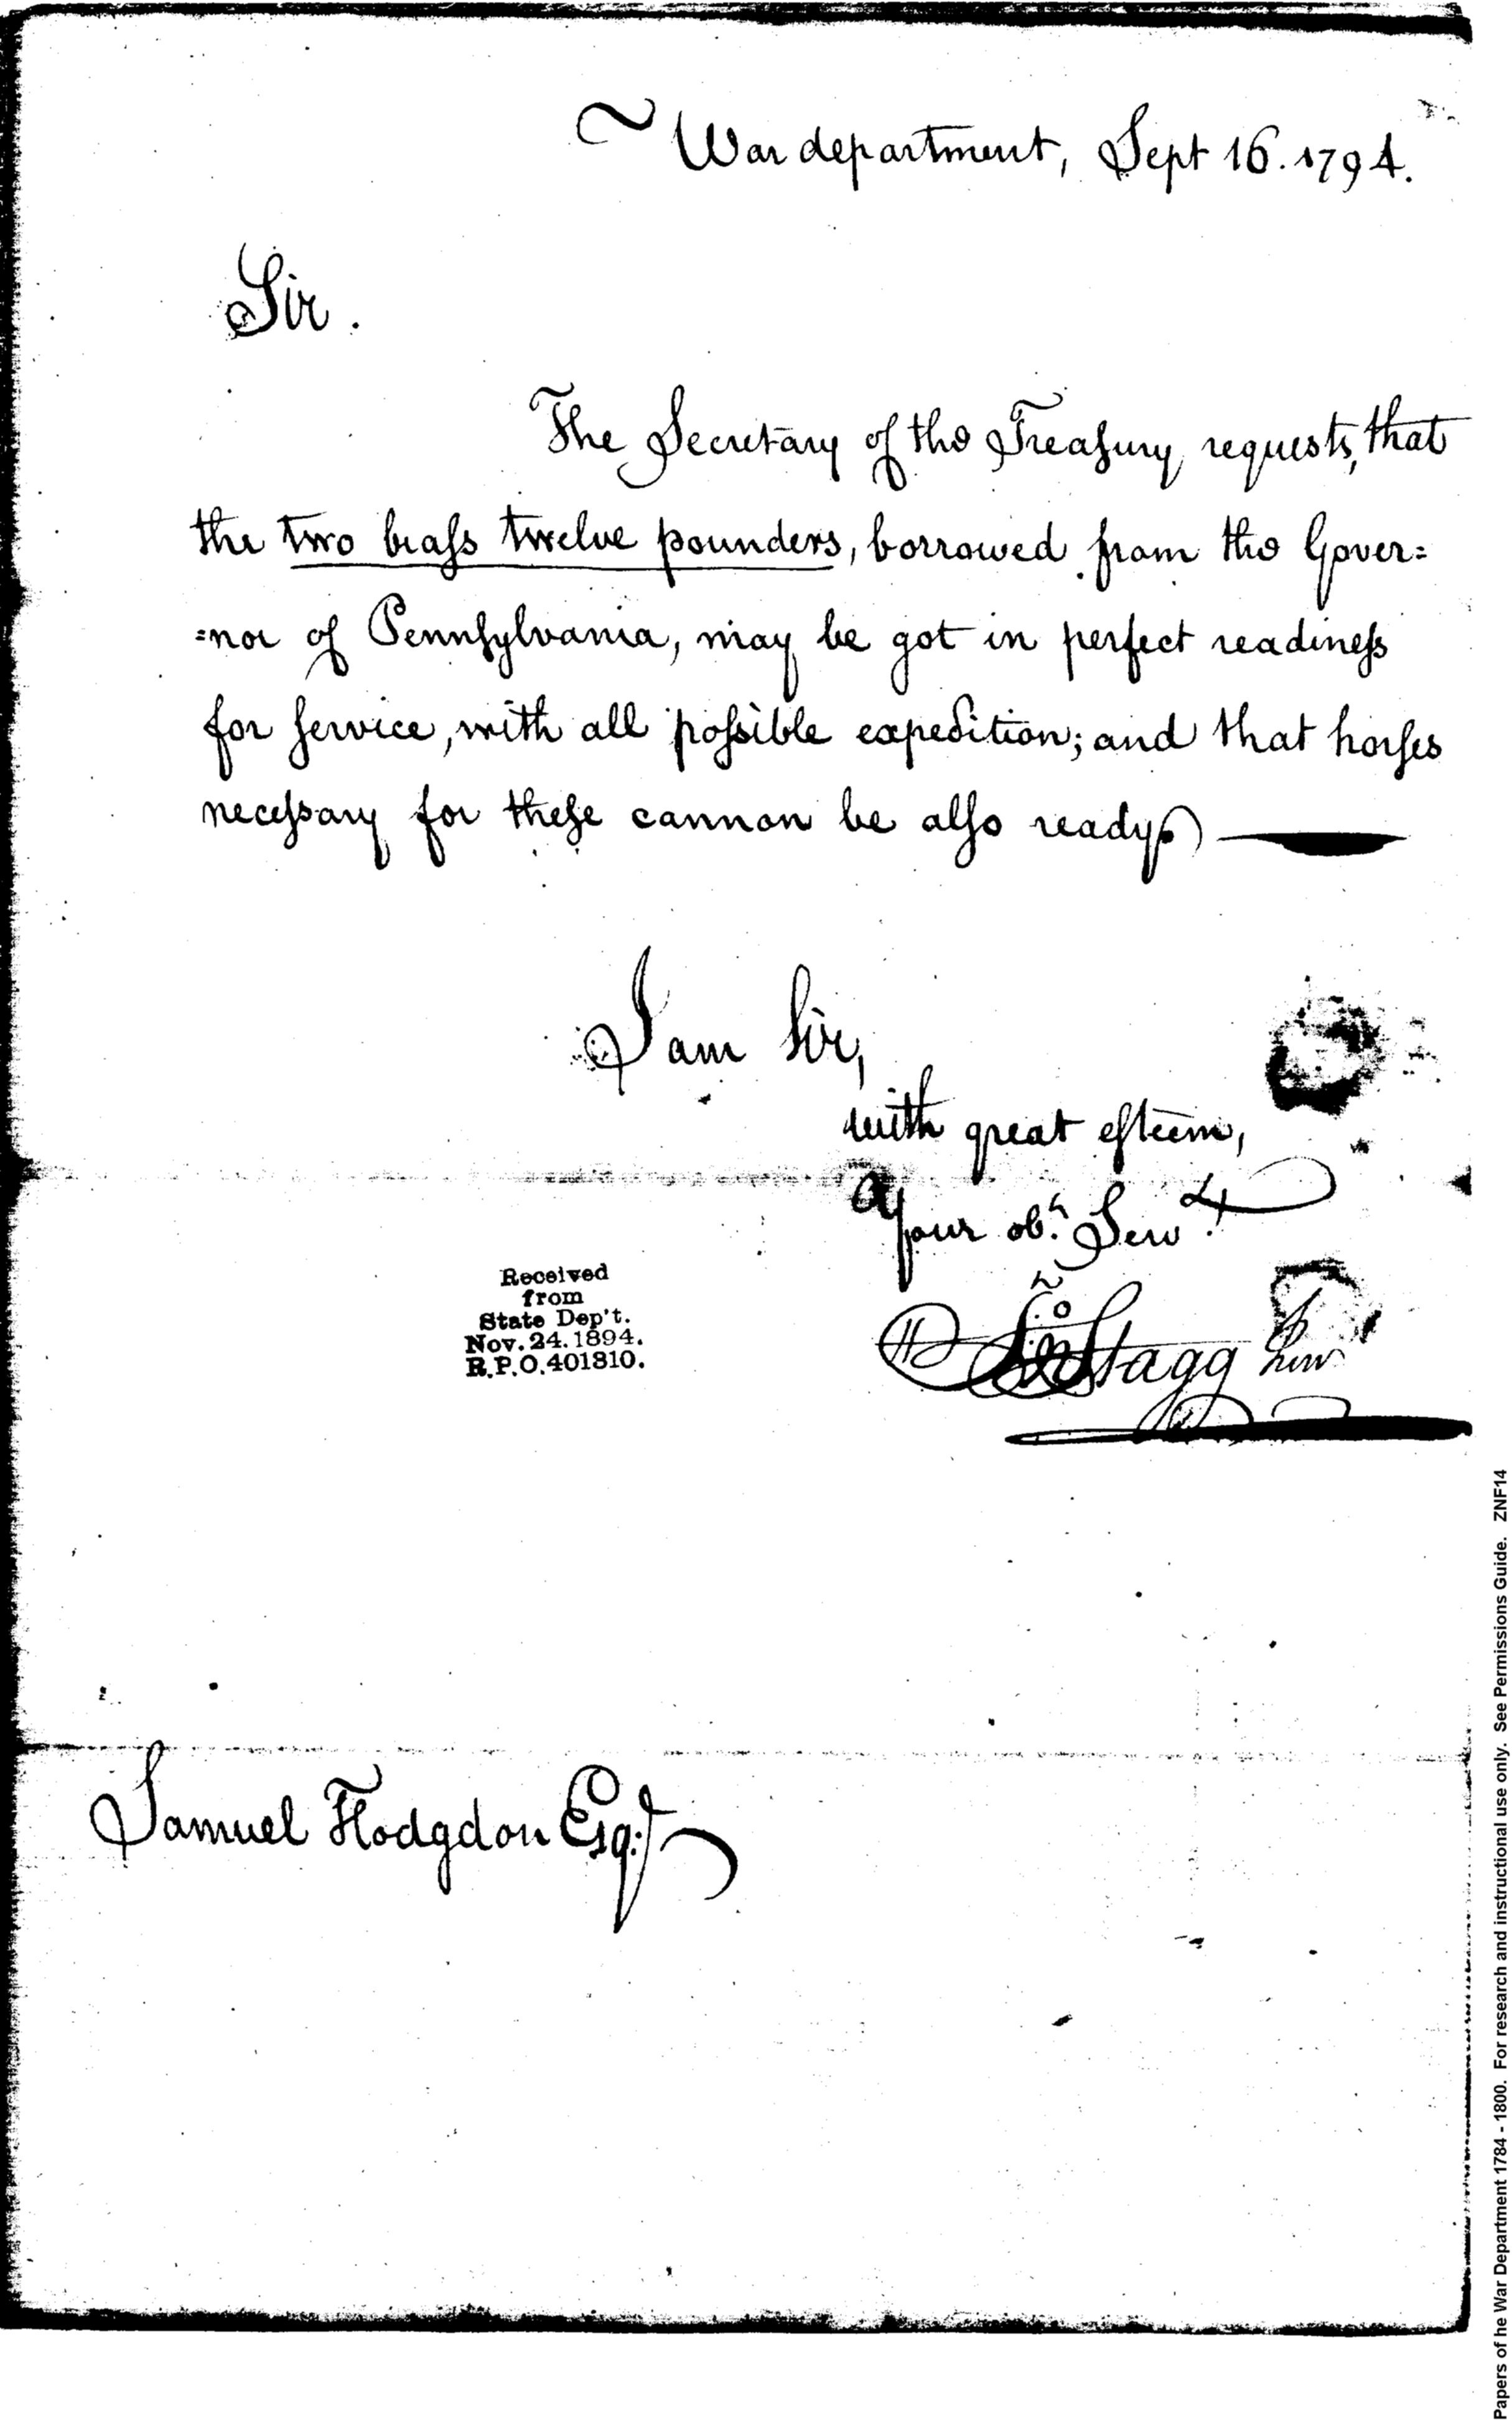 War department, Sept 16. 1794.
Sir.
The Secretary of the Treasury requests, that
the two brass twelve pounders, borrowed from the Gover=
=nor of Pennsylvania, may be got in perfect readiness
for service, with all possible expedition; and that horses
necessary for these cannon be also ready
I am Sir,
with great esteem,
Your obt. Servt.
Jno Stagg Junr
Received
from
State Dep't.
Nov. 24. 1894.
R.P.O. 401810.
Samuel Hodgdon Esqr.
Papers of he War Department 1784 - 1800. For research and instructional use only. See Permissions Guide. ZNF14